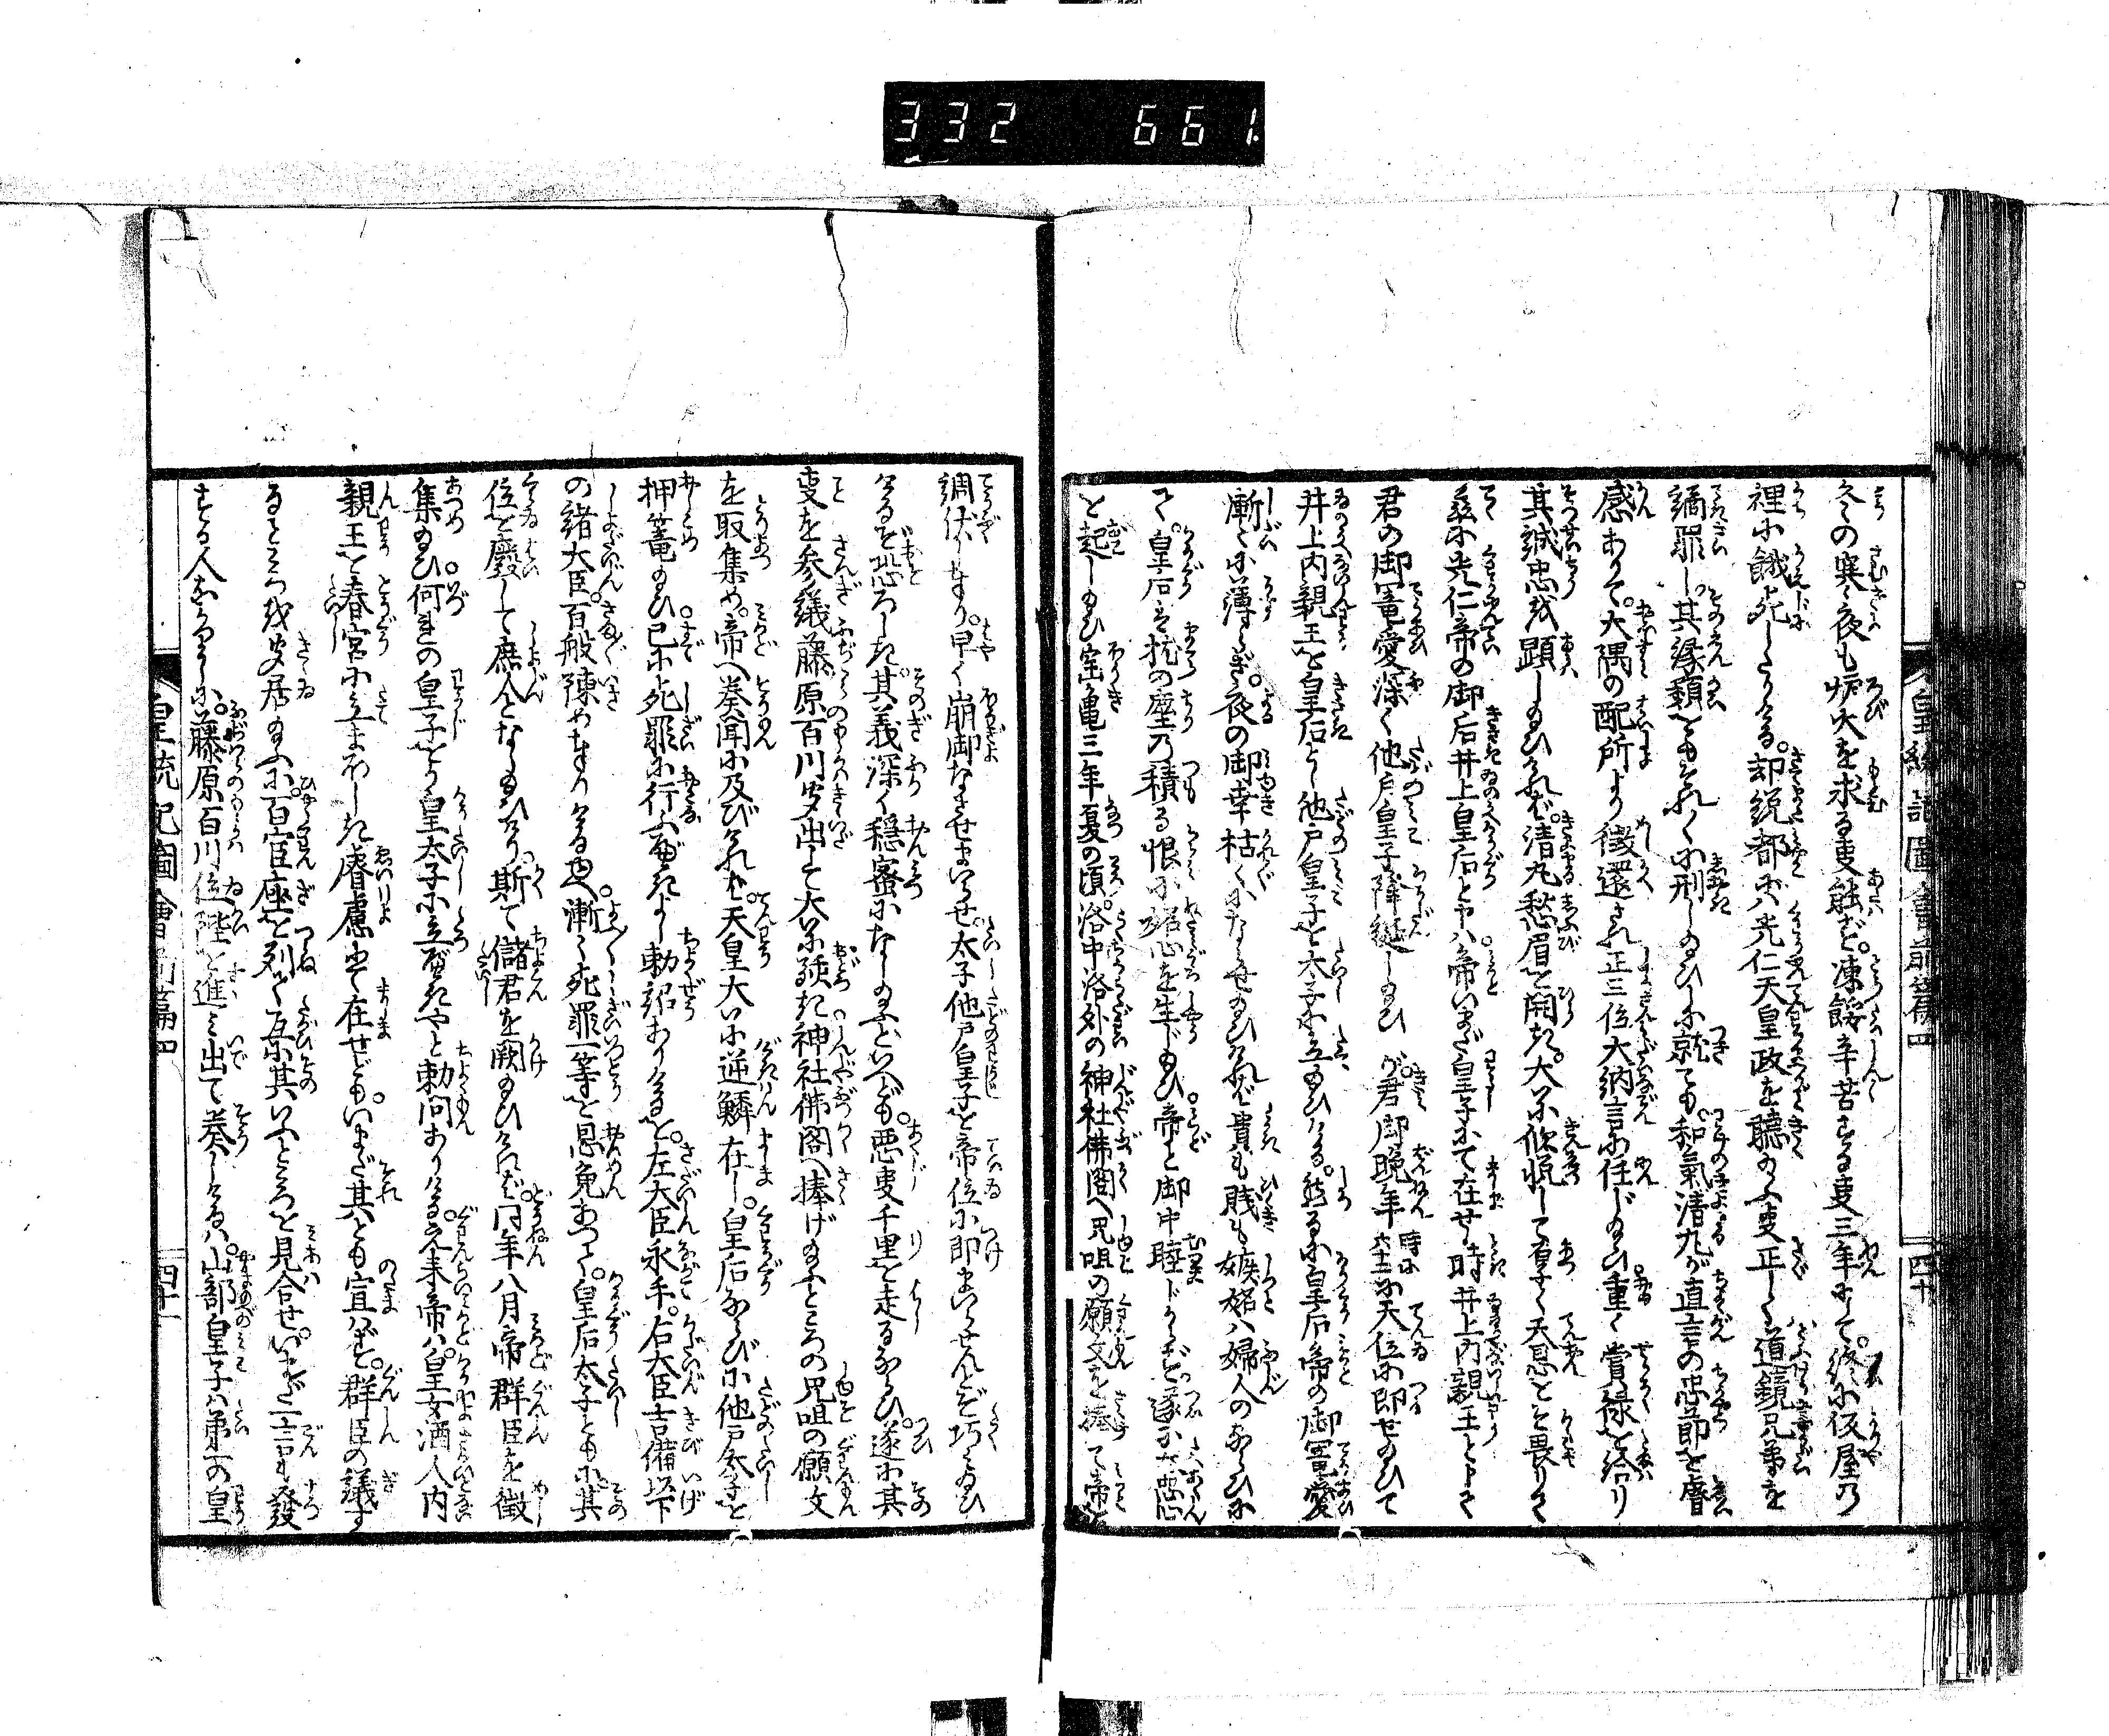 332 661
皇統記圖會前篇四
四十
冬の寒き夜も炉火を求る事能ず。凍餒辛苦する事三年にして。終に仮屋の
裡に餓死したりける。却説都には光仁天皇政を聴給ふ事正しく。道鏡兄弟を
謫罪し。其縁類ともそれ〳〵に刑し給ひしに就ても。和氣清丸が直言の忠節を睿
感ありて。大隅の配所より徴還され。正三位大納言に任じ給ひ。重く賞禄を給り
其誠忠を顕し給ひければ。清丸愁眉を開き。大に欣悦して厚く天恩をぞ畏りける
茲に光仁帝の御后井上皇后と申は。帝いまだ皇子にて在せし時井上内親王とよぞ
君の御寵愛深く他戸皇子降誕し給ひしが。君御晩年 時に六十二 に天位に即せ給ひて
井上内親王を皇后とし他戸皇子を太子に立給ひける。然るに皇后帝の御寵愛
漸々に薄らぎ。夜の御幸枯々にならせ給ひければ。貴も賎も嫉妬は婦人のならひに
て。皇后も枕の塵の積る恨に妬心を生じ給ひ。帝と御中睦じからず。遂に大悪心
を起し給ひ宝亀三年夏の頃。洛中洛外の神社佛閣へ咒咀の願文を捧て帝を
調伏し奉り。早く崩御なさせまいらせ。太子他戸皇子を帝位に即まいらせんとぞ巧み給ひ
けるぞ恐ろしき。其義深く穏蜜になし給ふといへども。悪事千里を走るならひ。遂に其
事を参議藤原百川聞出して大に駭き神社佛閣へ捧げ給ふところの咒咀の願文
を取集め。帝へ奏聞に及びければ。天皇大いに逆鱗在し。皇后ならびに他戸太子を
押篭給ひ。已に死罪に行ふべきよし勅詔ありけるを。左大臣永手。右大臣吉備以下
の諸大臣。百般陳め奉りける也。漸々死罪一等を恩免あつて。皇后太子ともに。其
位を廢して庶人となし給ひけり。斯て儲君を闕給ひければ。同年八月帝群臣を徴
集給ひ。何れの皇子をか皇太子に立べきやと勅問ありける。元来帝は。皇女酒人内
親王を春宮に立まほしき睿慮にて在せども。いまだ其とも宣はず。群臣の議す
るところを聞居給ふに。百官座を列て互に其いふところを見合せ。いまだ一言も發
する人なかりしに。藤原百川位階を進み出て奏しけるは。山部皇子は第一の皇
皇統記圖會前篇四
四十一